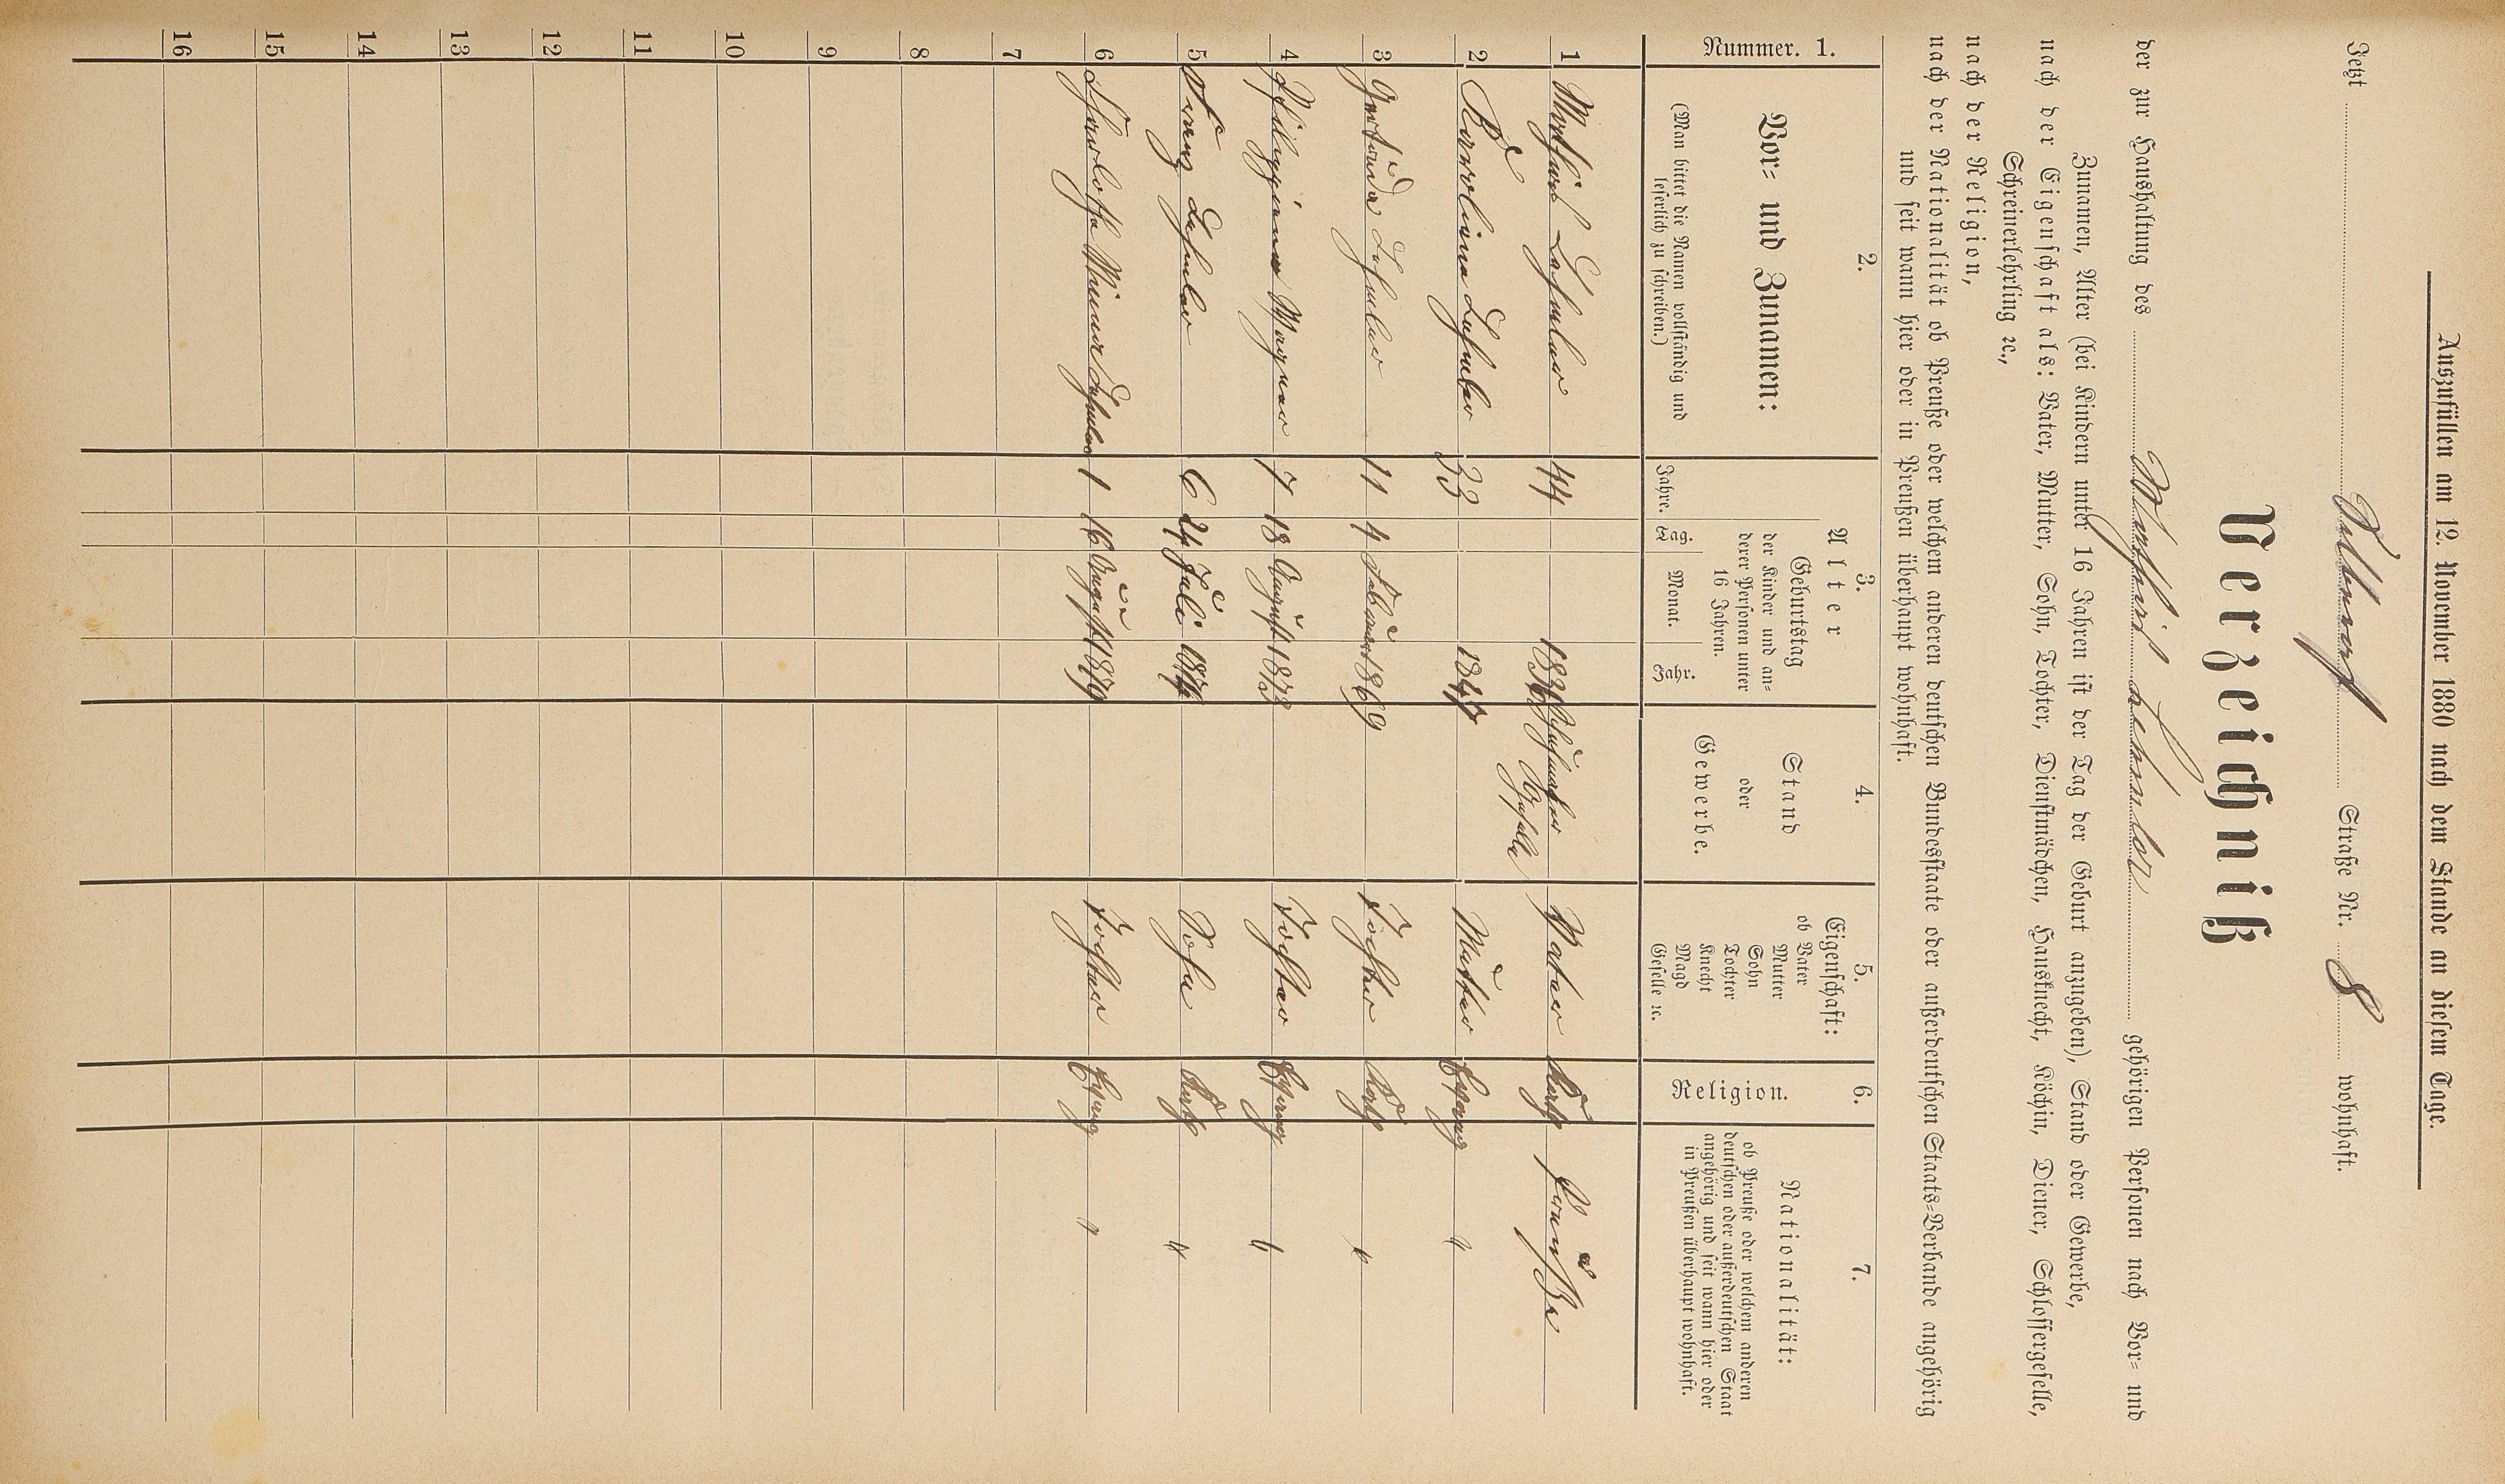 Auszufüllen am 12. November 1880 nach dem Stande an diesem Tage.
Jetzt Straße Nr. 8 wohnhaft.
Verzeichniß
der zur Haushaltung des gehörigen Personen nach Vor= und
Zunamen, Alter (bei Kindern unter 16 Jahren ist der Tag der Geburt anzugeben), Stand oder Gewerbe,
nach der Eigenschaft als: Vater, Mutter, Sohn, Tochter, Dienstmädchen, Hausknecht, Köchin, Diener, Schlossergeselle,
Schreinerlehrling ꝛc.,
nach der Religion,
nach der Nationalität ob Preuße oder welchem anderen deutschen Bundesstaate oder außerdeutschen Staats=Verbande angehörig
und seit wann hier oder in Preußen überhaupt wohnhaft.
Nummer. 1.
2.
Vor= und Zunamen:
(Man bittet die Namen vollständig und
leserlich zu schreiben.)
3.
Alter
Jahre.
Geburtstag
der Kinder und an=
derer Personen unter
16 Jahren.
Tag. Monat. Jahr.
4.
Stand
oder
Gewerbe.
5.
Eigenschaft:
ob Vater
Mutter
Sohn
Tochter
Knecht
Magd
Geselle ꝛc.
6.
Religion.
7.
Nationalität:
ob Preuße oder welchem anderen
deutschen oder außerdeutschen Staat
angehörig und seit wann hier oder
in Preußen überhaupt wohnhaft.
1 44 1836 Schuhmacher Vater Kath Preuße
Geselle
2 Karolina 33 1847 Mutter Evang "
3 11 4 Februar 1869 Tochter Kath "
4 Philippina Wagner 7 18 August 1873 Tochter Evang "
5 Franz 6 24 Juli 1874 Sohn Kath "
6 1 16 August 1879 Tochter Evang "
7
8
9
10
11
12
13
14
15
16